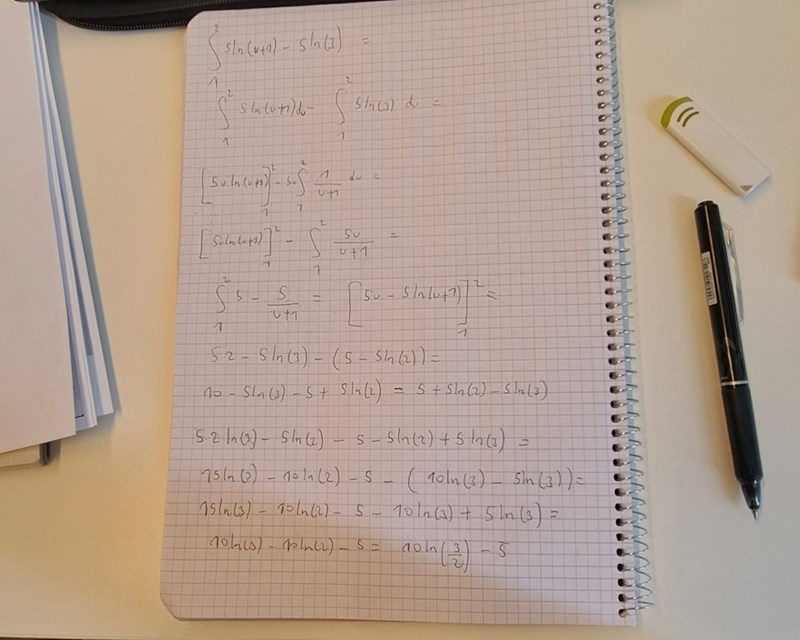 ∫₁² 5ln(u+1) - 5ln(3) =
∫₁² 5ln(u+1) du - ∫₁² 5ln(3) du =
[5u ln(u+1)]₁² - 5u ∫₁² 1/(u+1) du =
[5u ln(u+1)]₁² - ∫₁² 5u/(u+1) =
∫₁² 5 - 5/(u+1) = [5u - 5ln(u+1)]₁² =
5·2 - 5ln(3) - (5 - 5ln(2)) =
10 - 5ln(3) - 5 + 5ln(2) = 5 + 5ln(2) - 5ln(3)
5·2 ln(3) - 5ln(2) - 5 - 5ln(2) + 5ln(3) =
15ln(3) - 10ln(2) - 5 - (10ln(3) - 5ln(3)) =
15ln(3) - 10ln(2) - 5 - 10ln(3) + 5ln(3) =
10ln(3) - 10ln(2) - 5 = 10ln(3/2) - 5